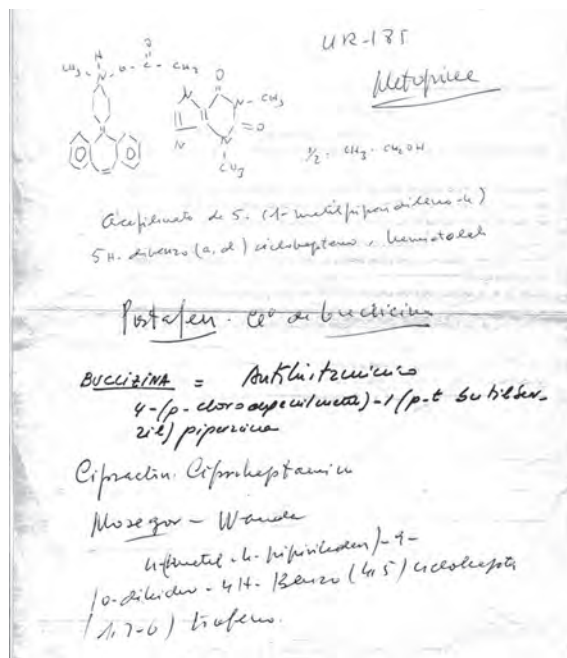 UR-185
Metopinee
CH₃ H N-O-C-CH₂ O
N O N-CH₃ O N N CH₃
1/2 . CH₃ . CH₂OH
de 5. (1-metilpiperidileno-4)
5H. dibenzo (a, d) ciclohepteno,
Postafen. Clº de buclicina
BUCLIZINA = Antihistaminico
4-(p-cloro )-1(p-t butilben-
zil) piperizina
Cipractin. Ciproheptamin
Mosegor - Wander
4-(metil-4-pipiriheden)-9-
10-dihidro-4H-Benzo (4,5) ciclohepta
(1,2-6) tiofeno.